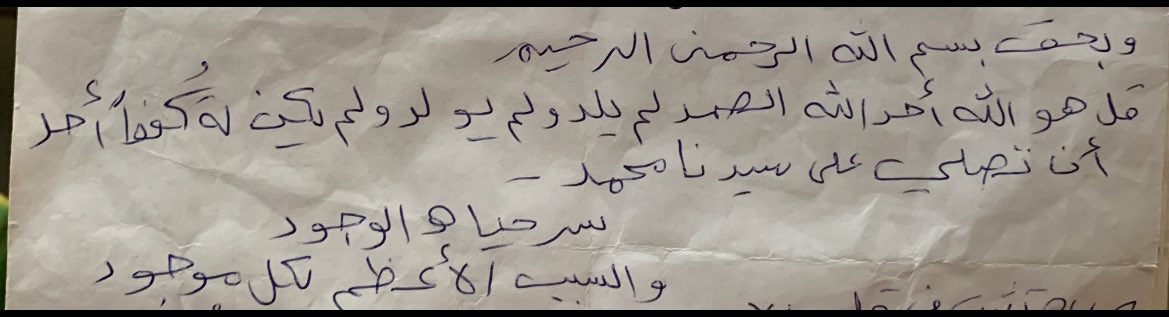 وبحق بسم الله الرحمن الرحيم
قل هو الله أحد الله الصمد لم يلد ولم يولد ولم يكن له كُفواً أحد
أن تصلي على سيدنا محمد -
سر حياه الوجود
والسبب الأعظم لكل موجود